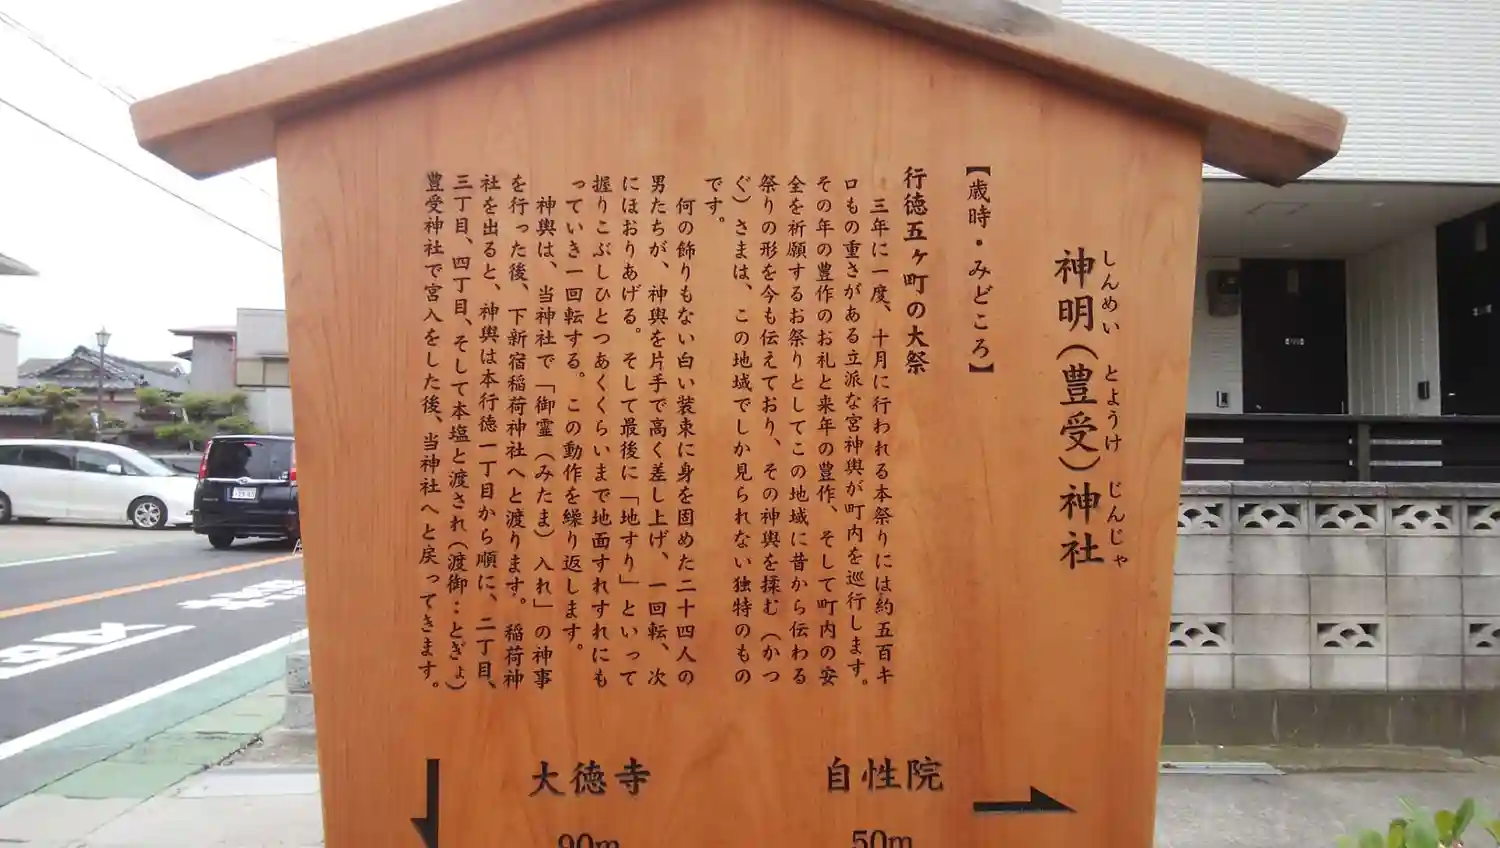 しんめい とようけ じんじゃ
神明(豊受)神社
【歳時・みどころ】
行徳五ヶ町の大祭
三年に一度、十月に行われる本祭りには約五百キ
ロもの重さがある立派な宮神輿が町内を巡行します。
その年の豊作のお礼と来年の豊作、そして町内の安
全を祈願するお祭りとしてこの地域に昔から伝わる
祭りの形を今も伝えており、その神輿を揉む(かつ
ぐ)さまは、この地域でしか見られない独特のもの
です。
何の飾りもない白い装束に身を固めた二十四人の
男たちが、神輿を片手で高く差し上げ、一回転、次
にほおりあげる。そして最後に「地すり」といって
握りこぶしひとつあくくらいまで地面すれすれにも
っていき一回転する。この動作を繰り返します。
神輿は、当神社で「御霊(みたま)入れ」の神事
を行った後、下新宿稲荷神社へと渡ります。稲荷神
社を出ると、神輿は本行徳一丁目から順に、二丁目、
三丁目、四丁目、そして本塩と渡され(渡御:とぎょ)
豊受神社で宮入をした後、当神社へと戻ってきます。
自性院
50m
大徳寺
90m